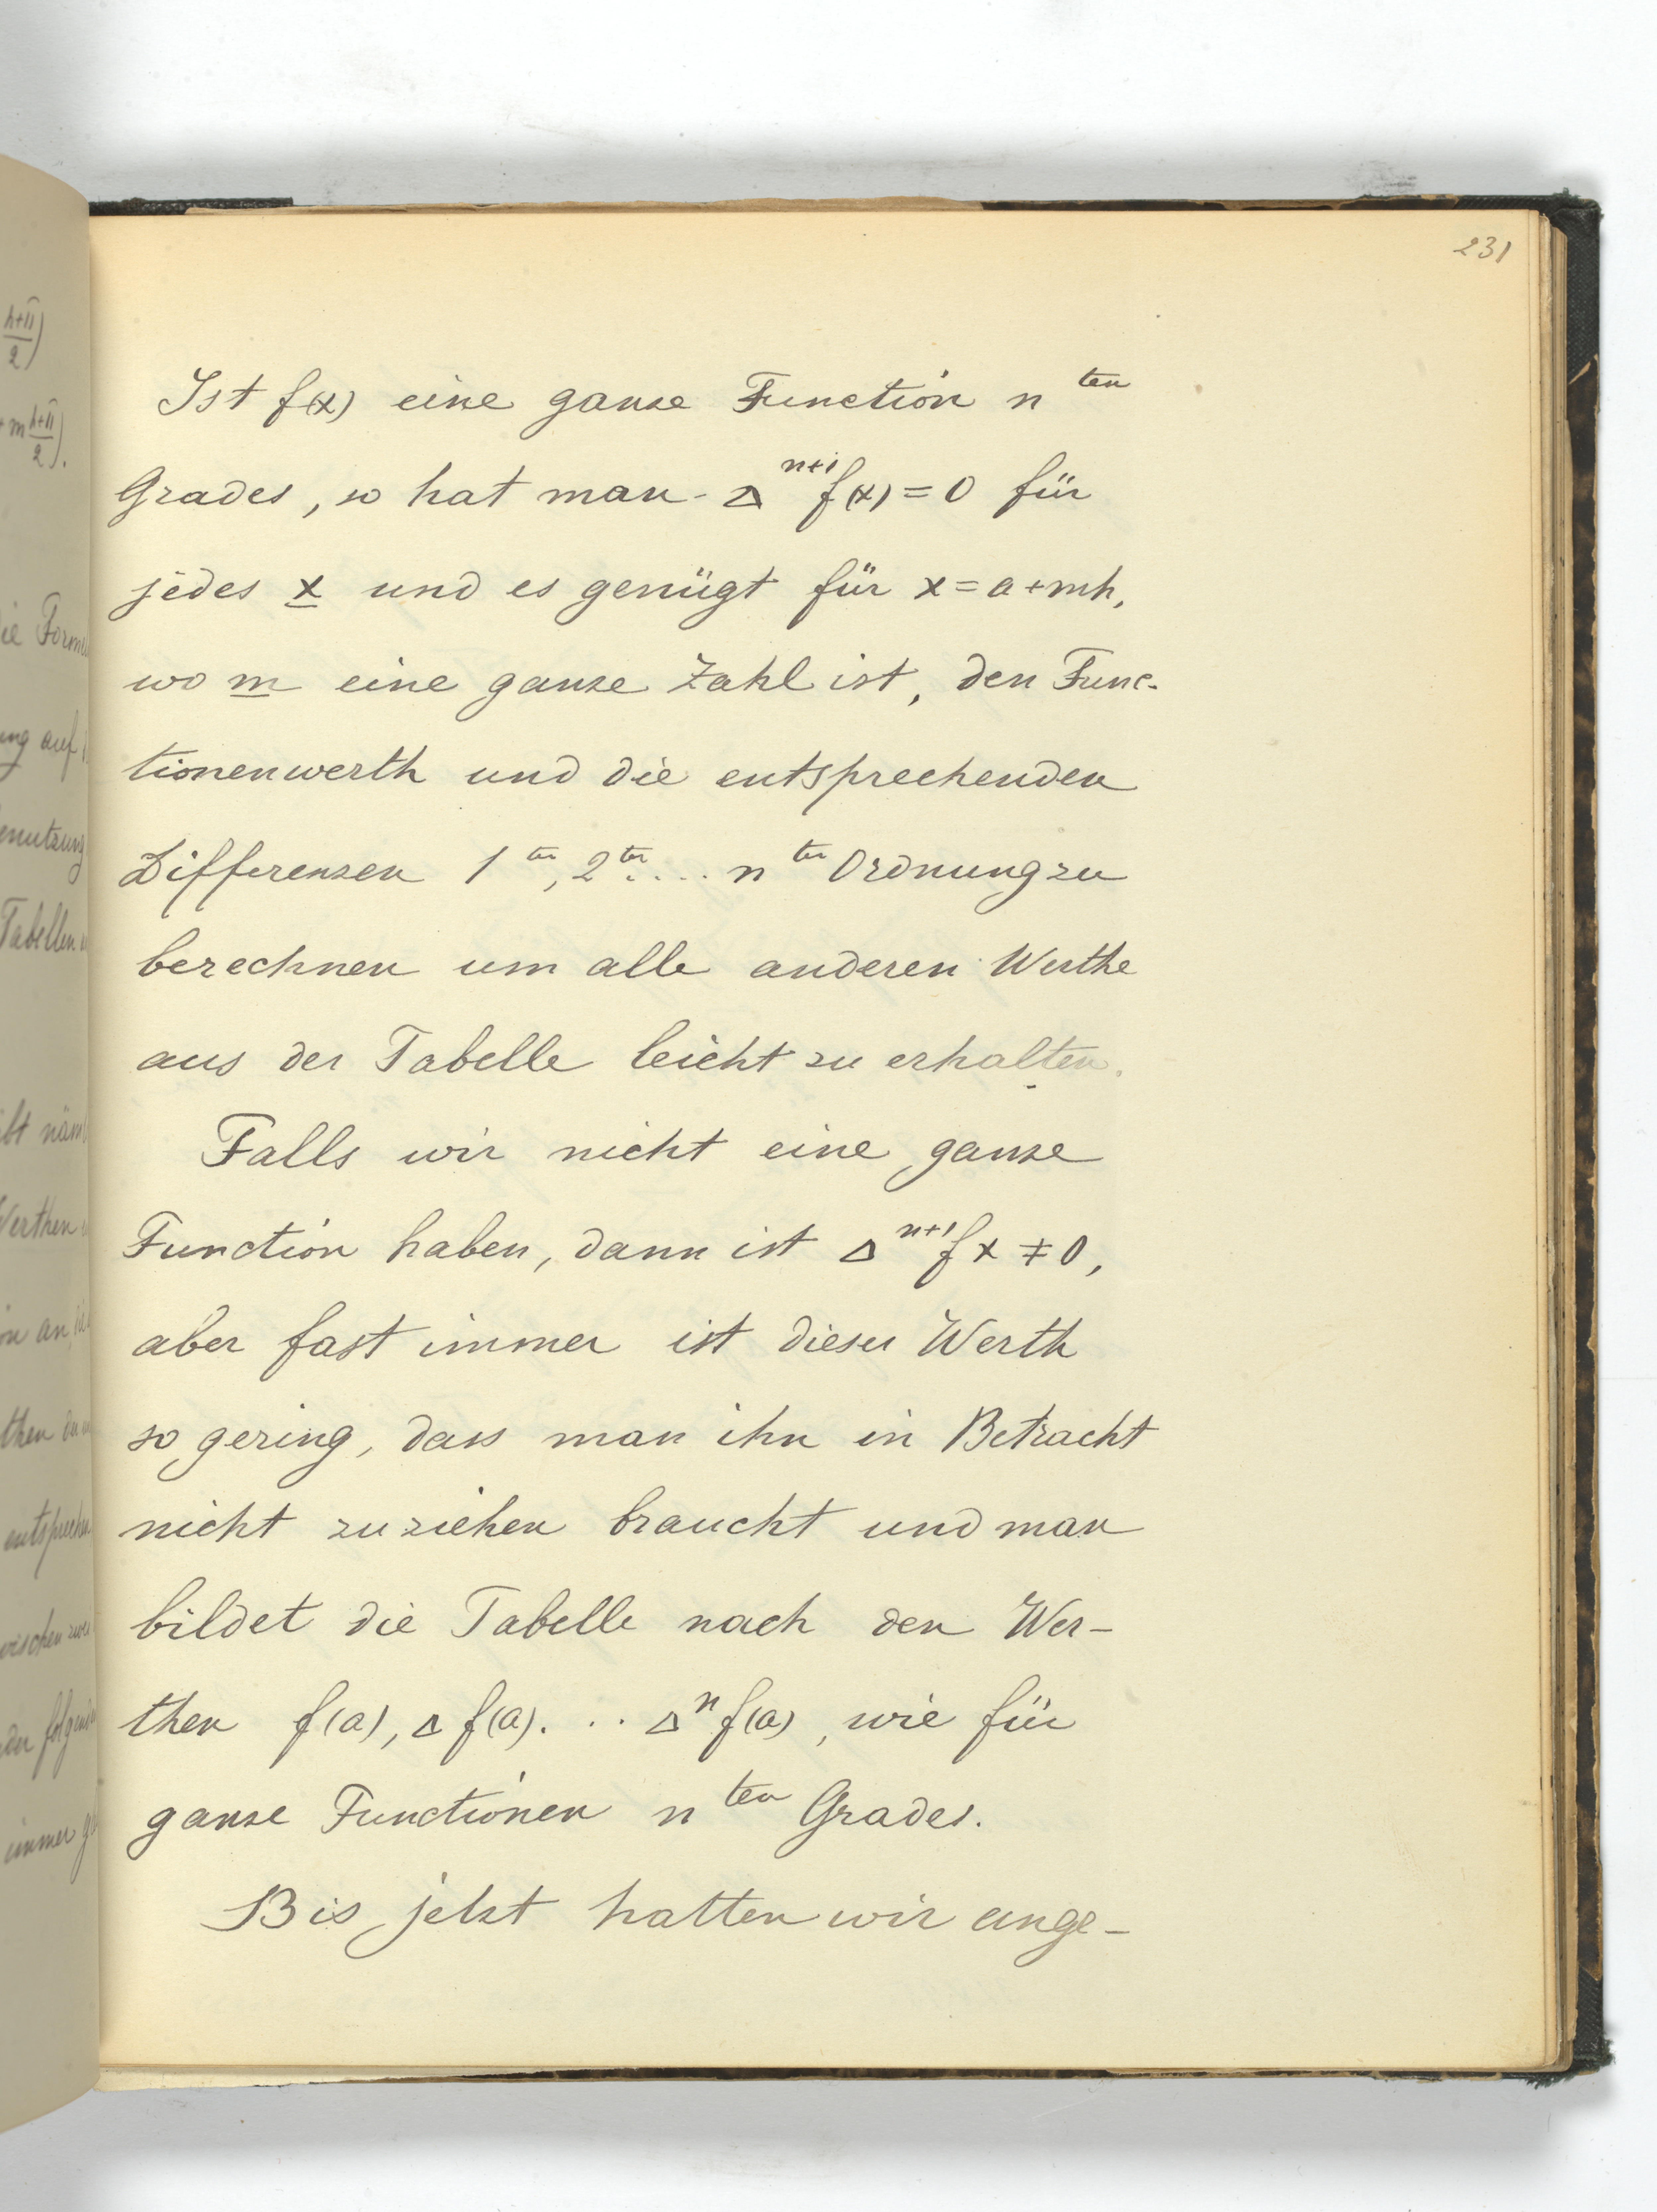 231
Ist f(x) eine ganze Function n ten
Grades, so hat man Δ^{n+1} f(x) = 0 für
jedes x und es genügt für x = a + mh,
wo m eine ganze Zahl ist, den Func-
tionenwerth und die entsprechenden
Differenzen 1 ter, 2 ter .... n ter Ordnung zu
berechnen um alle anderen Werthe
aus der Tabelle leicht zu erhalten.
Falls wir nicht eine ganze
Function haben, dann ist Δ^{n+1} f x ≠ 0,
aber fast immer ist dieser Werth
so gering, dass man ihn in Betracht
nicht zu ziehen braucht und man
bildet die Tabelle nach den Wer-
then f(a), Δ f(a). .. Δ^n f(a), wie für
ganze Functionen n ten Grades.
Bis jetzt hatten wir ange-